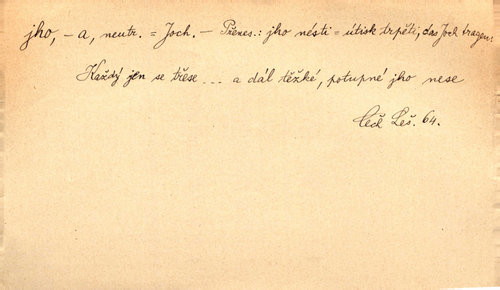 jho, -a, neutr. = Joch. — Přenes.: jho nésti = útisk trpěti; das Joch tragen:
Každý jen se třese ... a dál těžké, potupné jho nese
Čech Leš. 64.